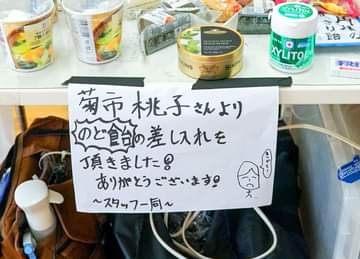 XYLITOL
菊市 桃子さんより
のど飴の差し入れを
頂きました!
ありがとうございます!
〜スタッフ一同〜